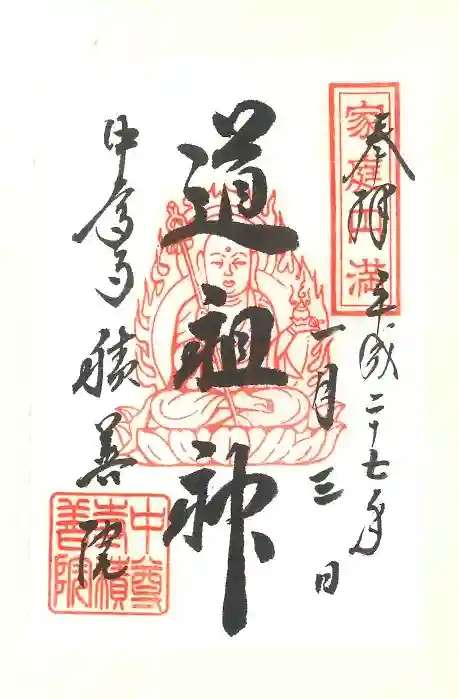 家庭円満
奉拝 平成二十七年
一月三日
道祖神
中尊寺 積善院
中尊寺積善院